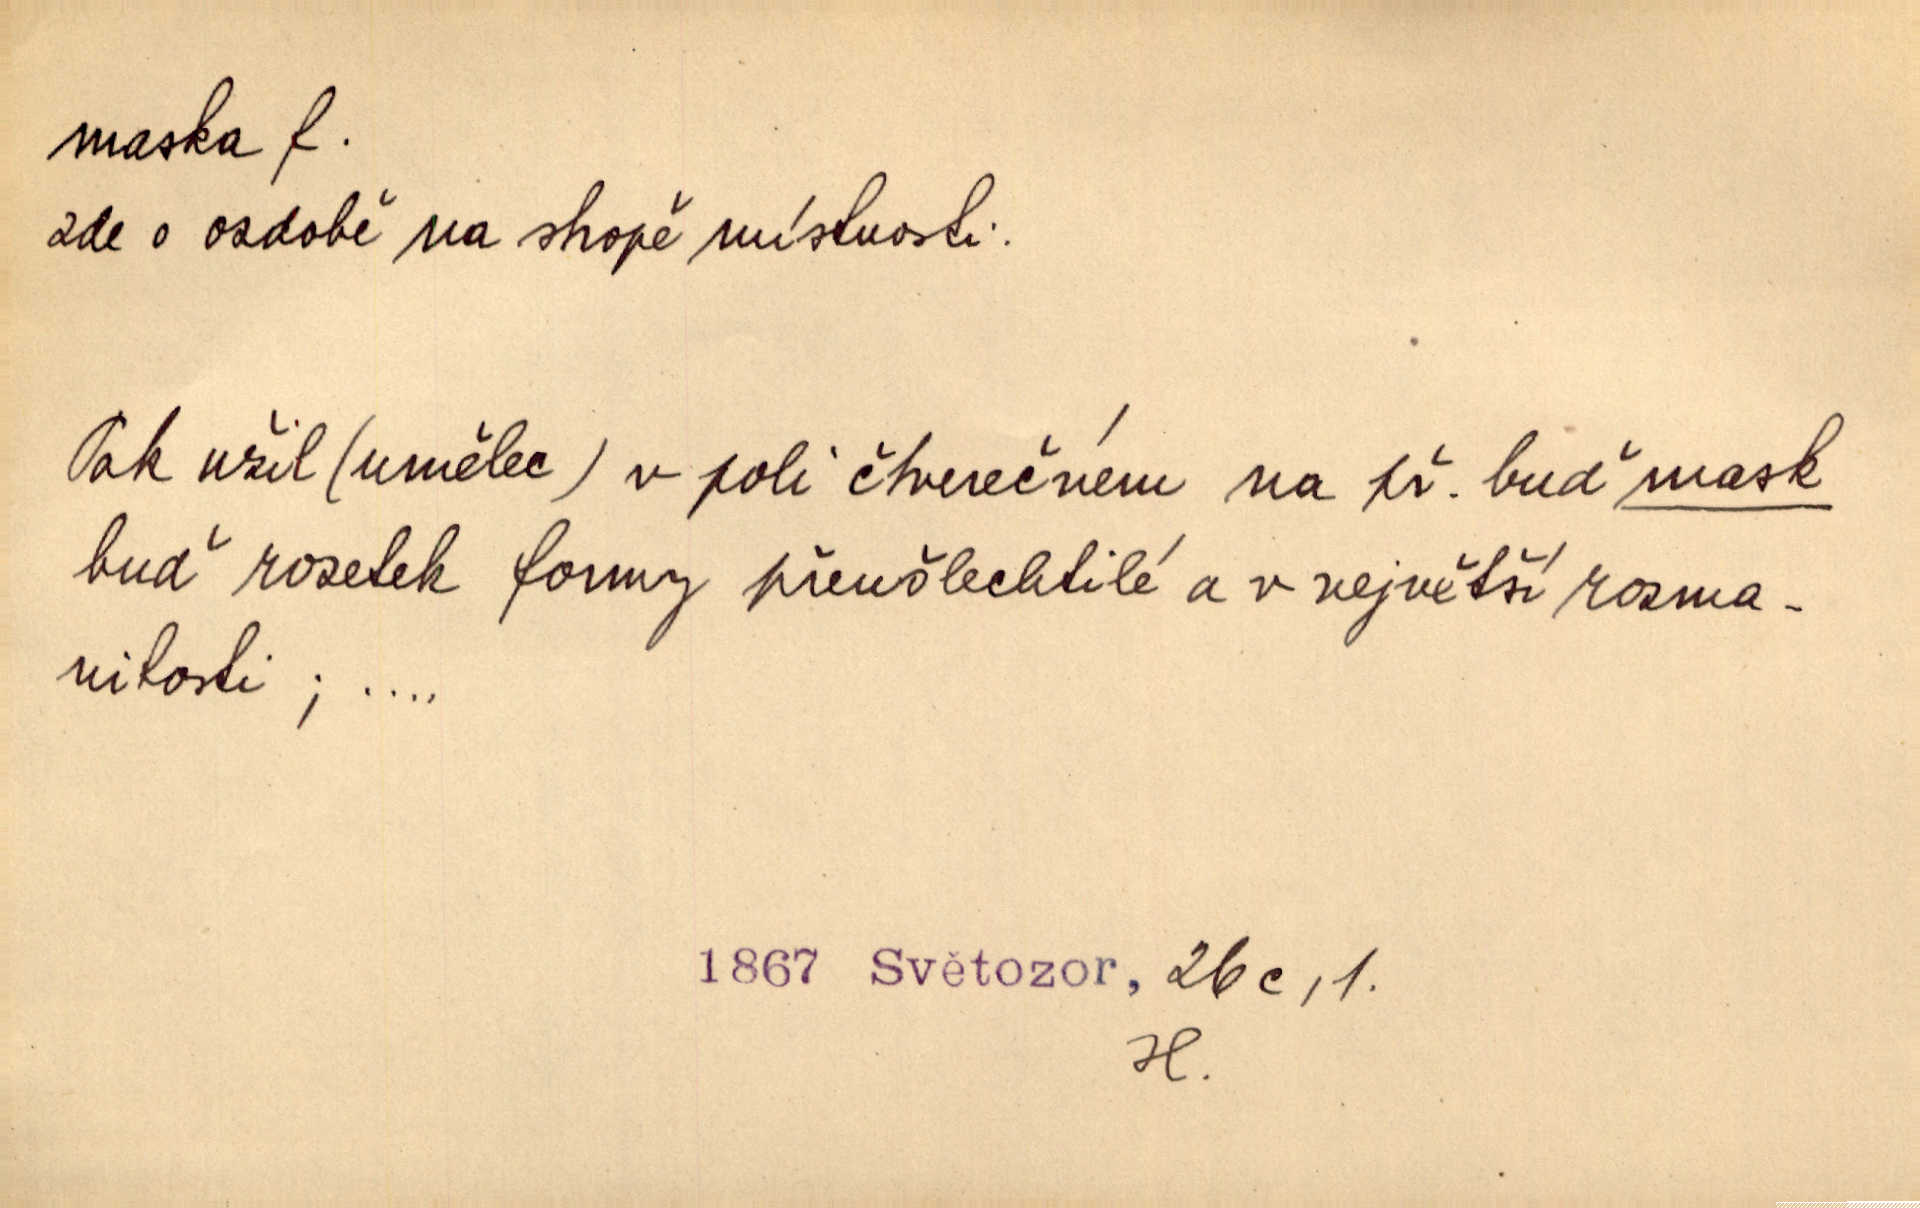 maska f.
zde o ozdobě na stropě místnosti.
Tak užil (umělec) v poli čtverečném na př. buď mask
buď rozetek formy přeušlechtilé a v největší rozma-
nitosti ; ....
1867 Světozor, 26 c, 1.
H.